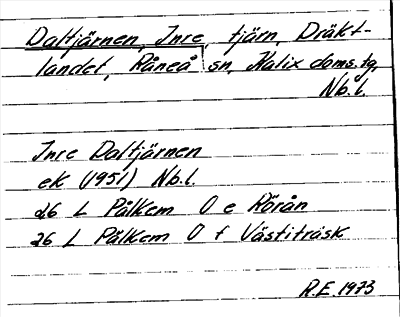 Daltjärnen, Inre, tjärn, Dräkt-
landet, Råneå sn, Kalix doms.tg,
Nb.l.
Inre Daltjärnen
ek (1951) Nb.l.
26 L Pålkem 0 e Rörån
26 L Pålkem 0 f Västiträsk
R.E. 1973